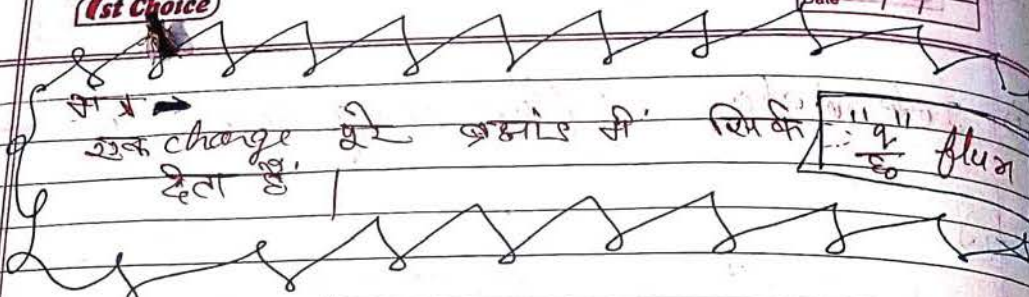 1st Choice
Date
एक change पूरे ब्रह्मांड में सिर्फ "q"/ε₀ flux
देता है।